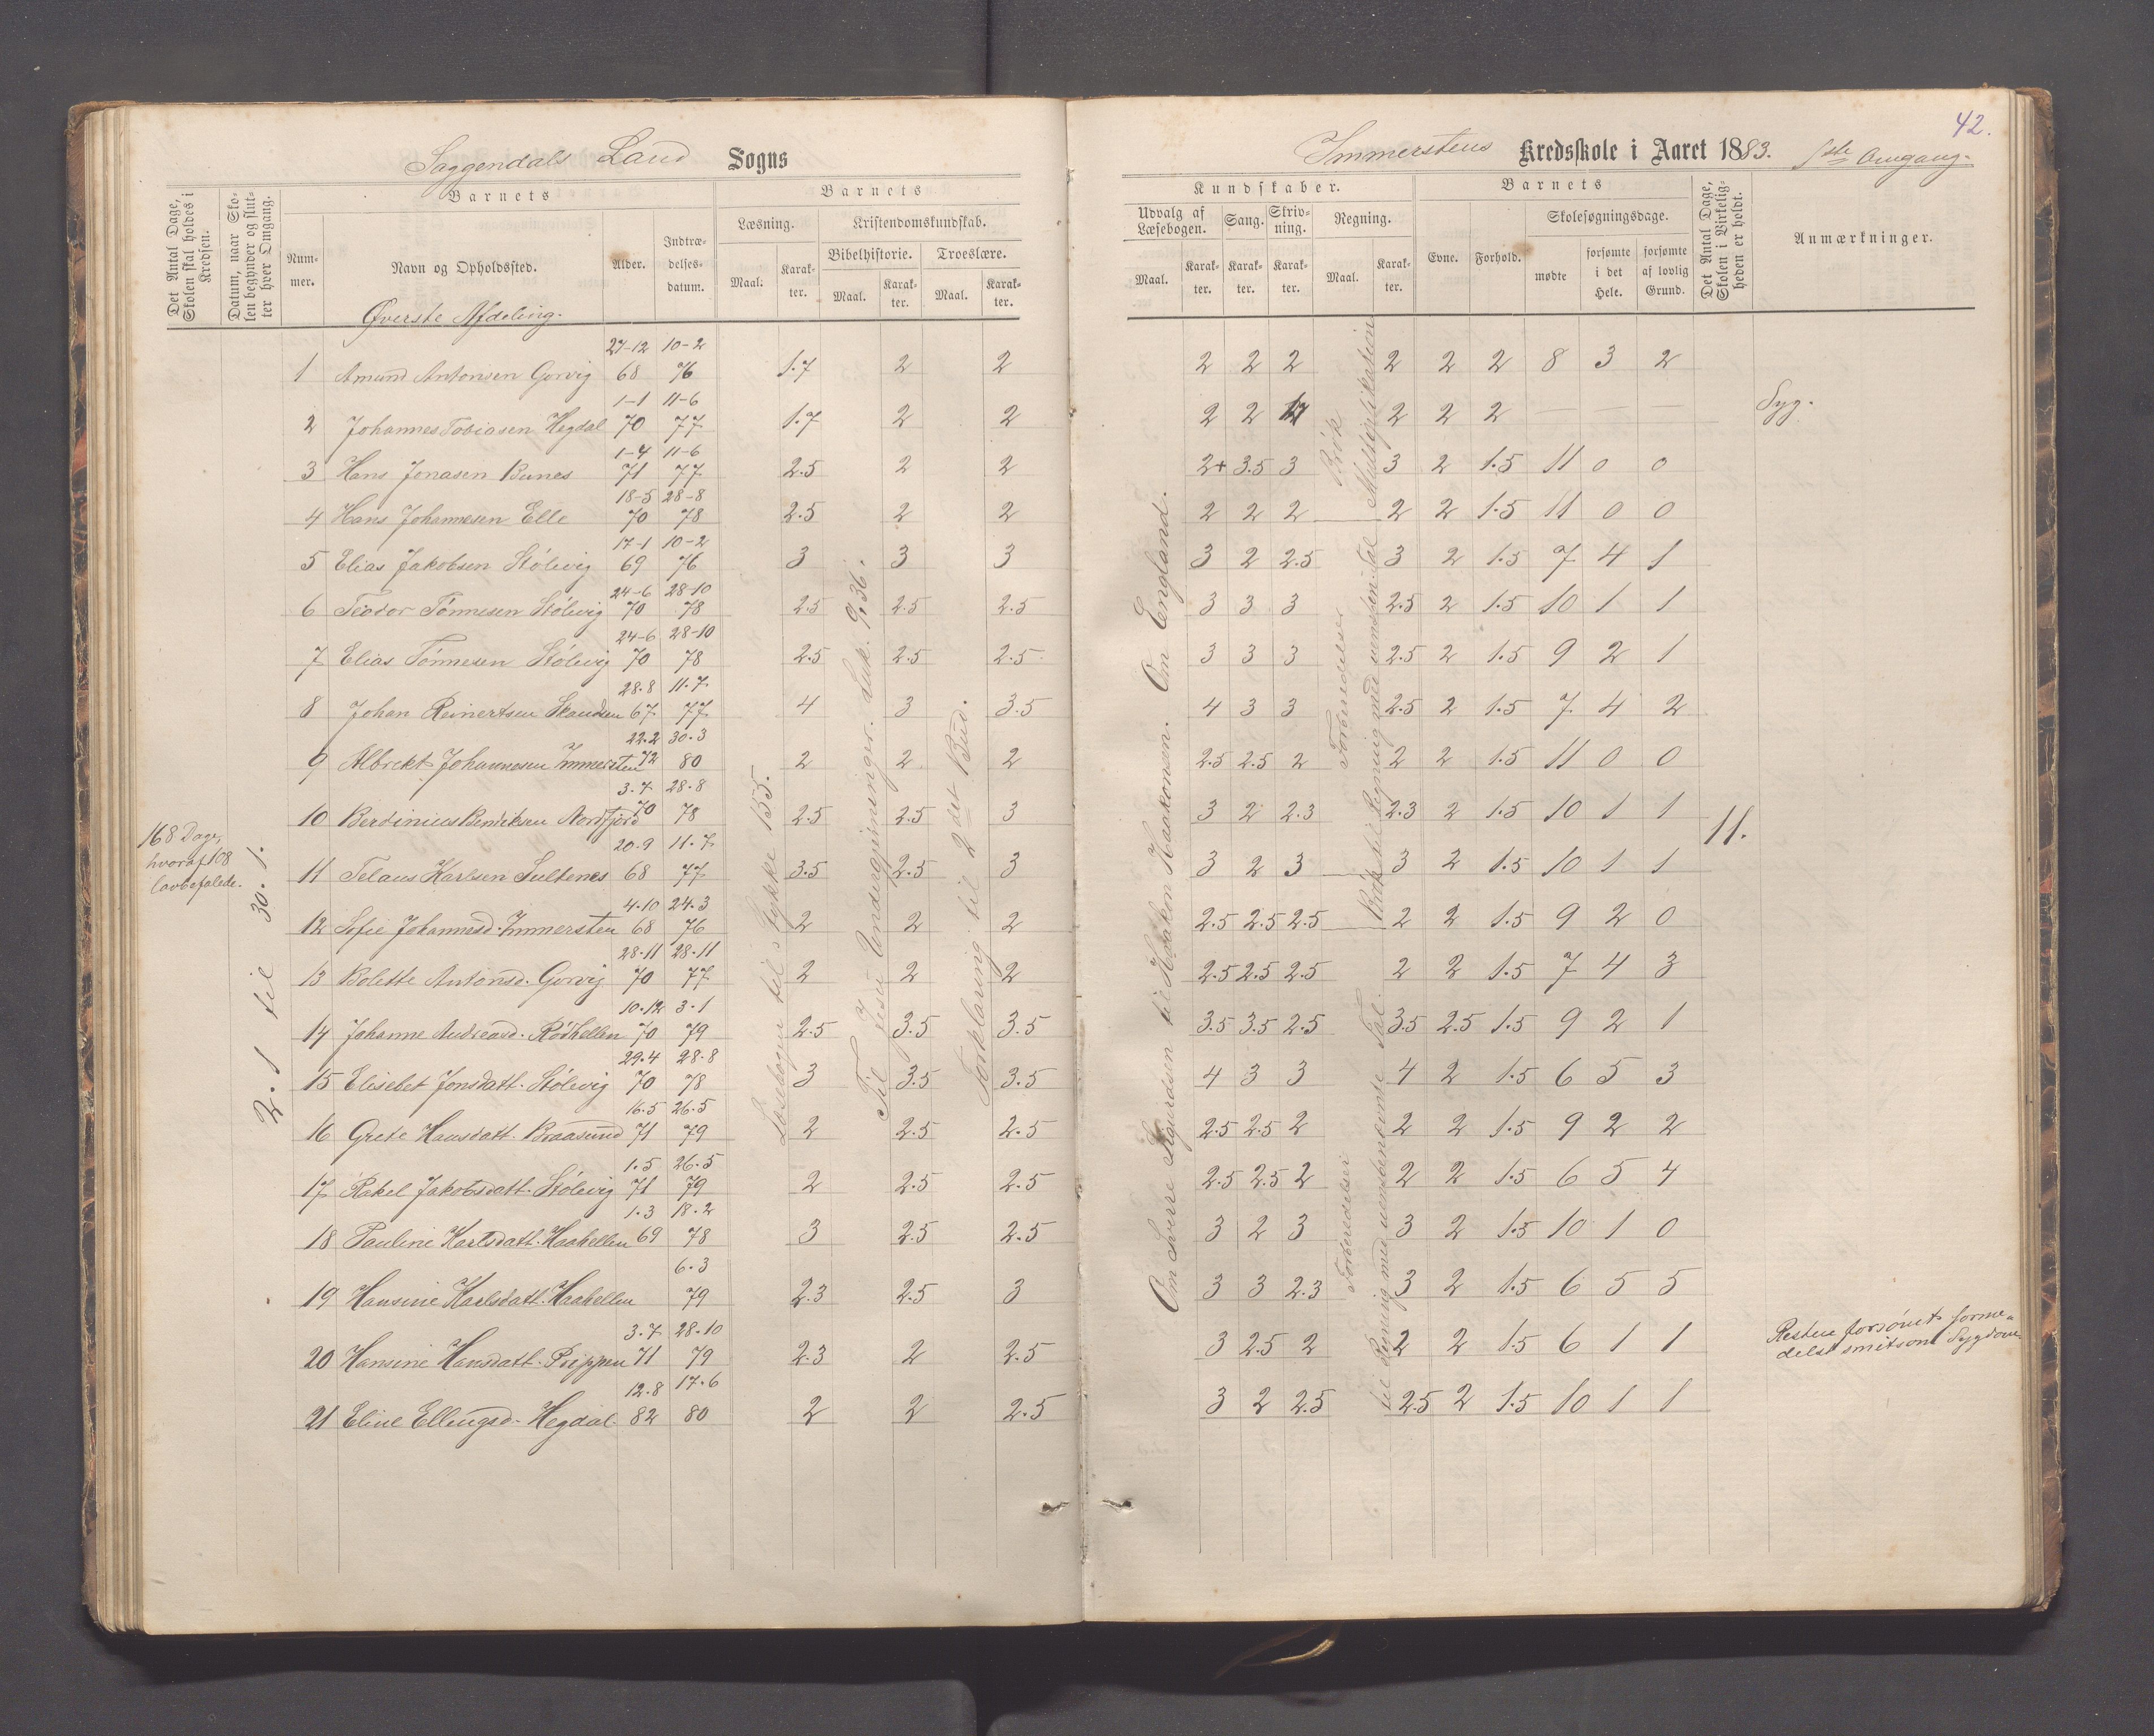 42.
Saggendals Land Sogns
Immerstens Kredsskole i Aaret 1883. 1ste Omgang.
Det Antal Dage, Skolen skal holdes i Kredsen.
Datum, naar Skolen begynder og slutter hver Omgang.
Barnets
Nummer.
Navn og Opholdssted.
Alder.
Indtrædelsesdatum.
Barnets
Læsning.
Kristendomskundskab.
Maal.
Karakter.
Bibelhistorie.
Troeslære.
Maal.
Karakter.
Maal.
Karakter.
Kundskaber.
Udvalg af Læsebogen.
Sang.
Skrivning.
Regning.
Maal.
Karakter.
Karakter.
Karakter.
Maal.
Karakter.
Barnets
Evne.
Forhold.
Skolesøgningsdage.
mødte
forsømte i det Hele.
forsømte af lovlig Grund.
Det Antal Dage, Skolen i Virkeligheden er holdt.
Anmærkninger.
Øverste Afdeling.
27-12 10-2
1 Amund Antonsen Gorvig 68 76 1.7 2 2 2 2 2 2 2 2 8 3 2
1-1 11-6
2 Johannes Tobiasen Hegdal 70 77 1.7 2 2 2 2 1.7 2 2 2 — — — Syg.
1-4 11-6
3 Hans Jonasen Bunes 71 77 2.5 2 2 2+ 3.5 3 3 2 1.5 11 0 0
18-5 28-8
4 Hans Johannesen Elle 70 78 2.5 2 2 2 2 2 2 2 1.5 11 0 0
17-1 10-2
5 Elias Jakobsen Stölevig 69 76 3 3 3 3 2 2.5 3 2 1.5 7 4 1
24-6 28-10
6 Teodor Tönnesen Stölevig 70 78 2.5 2.5 2.5 3 3 3 2.5 2 1.5 10 1 1
24-6 28-10
7 Elias Tönnesen Stölevig 70 78 2.5 2.5 2.5 3 3 3 2.5 2 1.5 9 2 1
28.8 11.7.
8 Johan Reinertsen Skanden 67 77 4 3 3.5 4 3 3 2.5 2 1.5 7 4 2
22.2 30.3
9 Albrekt Johannesen Immersten 72 80 2 2 2 2.5 2.5 2 2 2 1.5 11 0 0
3.7 28.8
10 Berdinius Bendiksen Nordfjord 70 78 2.5 2.5 3 3 2 2.3 2.3 2 1.5 10 1 1
20.9 11.7
11 Telaus Karlsen Sultenes 68 77 3.5 2.5 3 3 2 3 3 2 1.5 10 1 1
4.10 24.3
12 Sofie Johannesd. Immersten 68 76 2 2 2 2.5 2.5 2.5 2 2 1.5 9 2 0
28.11 28.11
13 Bolette Antonsd. Gorvig 70 77 2 2 2 2.5 2.5 2.5 2 2 1.5 7 4 3
10.12 3.1
14 Johanne Andreasd. Rödhellen 70 79 2.5 3.5 3.5 3.5 3.5 2.5 3.5 2.5 1.5 9 2 1
29.4 28.8
15 Elisebet Jonsdatt. Stölevig 70 78 3 3.5 3.5 4 3 3 4 2 1.5 6 5 3
16.5 26.5
16 Grete Hansdatt. Braasund 71 79 2 2.5 2.5 2.5 2.5 2 2 2 1.5 9 2 2
1.5 26.5
17 Rakel Jakobsdatt. Stölevig 71 79 2 2.5 2.5 2.5 2.5 2 2 2 1.5 6 5 4
1.3 18.2
18 Pauline Karlsdatt. Haahellen 69 78 3 2.5 2.5 3 2 3 3 2 1.5 10 1 0
6.3
19 Hansine Karlsdatt. Haahellen 79 2.3 2.5 3 3 3 2.3 3 2 1.5 6 5 5
3.7 28.10
20 Hansine Hansdatt. Prippen 71 79 2.3 2 2.5 3 2.5 2 2 2 1.5 6 1 1
12.8 17.6
21 Eline Ellingsd. Hegdal 82 80 2 2 2.5 3 2 2.5 2.5 2 1.5 10 1 1
168 Dage,
hvoraf 108
lovbefalede.
2.1 til 30.1.
Læsebogen til Stykke 155.
Til Jesu Undergjerninger. Luk. 9.36.
Forklaring til 2det Bud.
Om Sverre Sigurdsen til Haakon Haakonsen. Om England.
Brök
Multiplikation
Forberedelser
Brök til Regning med uensben. Tal
Forberedelser
til Regning med uensbenævnte Tal.
11.
Resten forsömt forme-
delst smitsom Sygdom